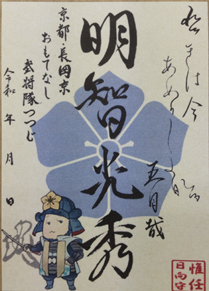 は今
五月哉
明智光秀
京都・長岡京
おもてなし
武将隊つつじ
令和 年 月 日
惟任
日向守